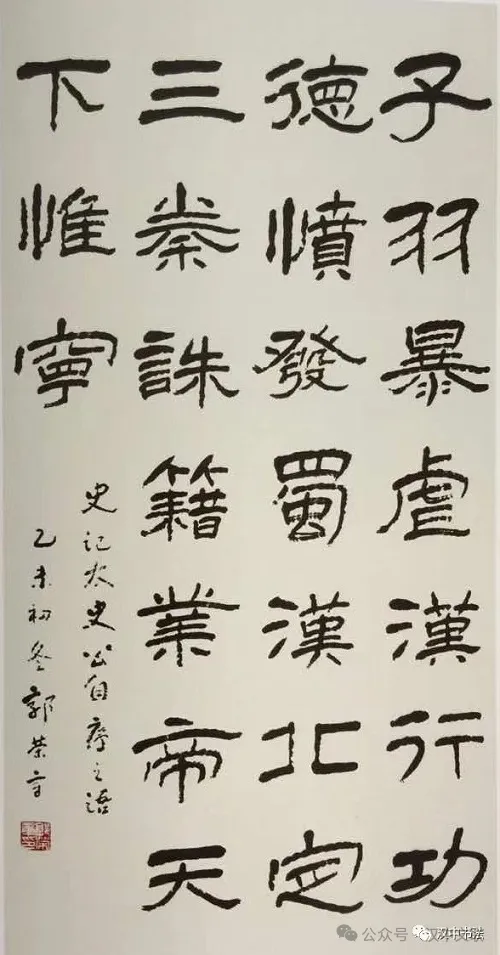 子羽暴虐漢行功
德憤發蜀漢北定
三秦誅籍業帝天
下惟寧
史記太史公自序之語
乙未初冬郭榮章
公众号·汉
汉中书法